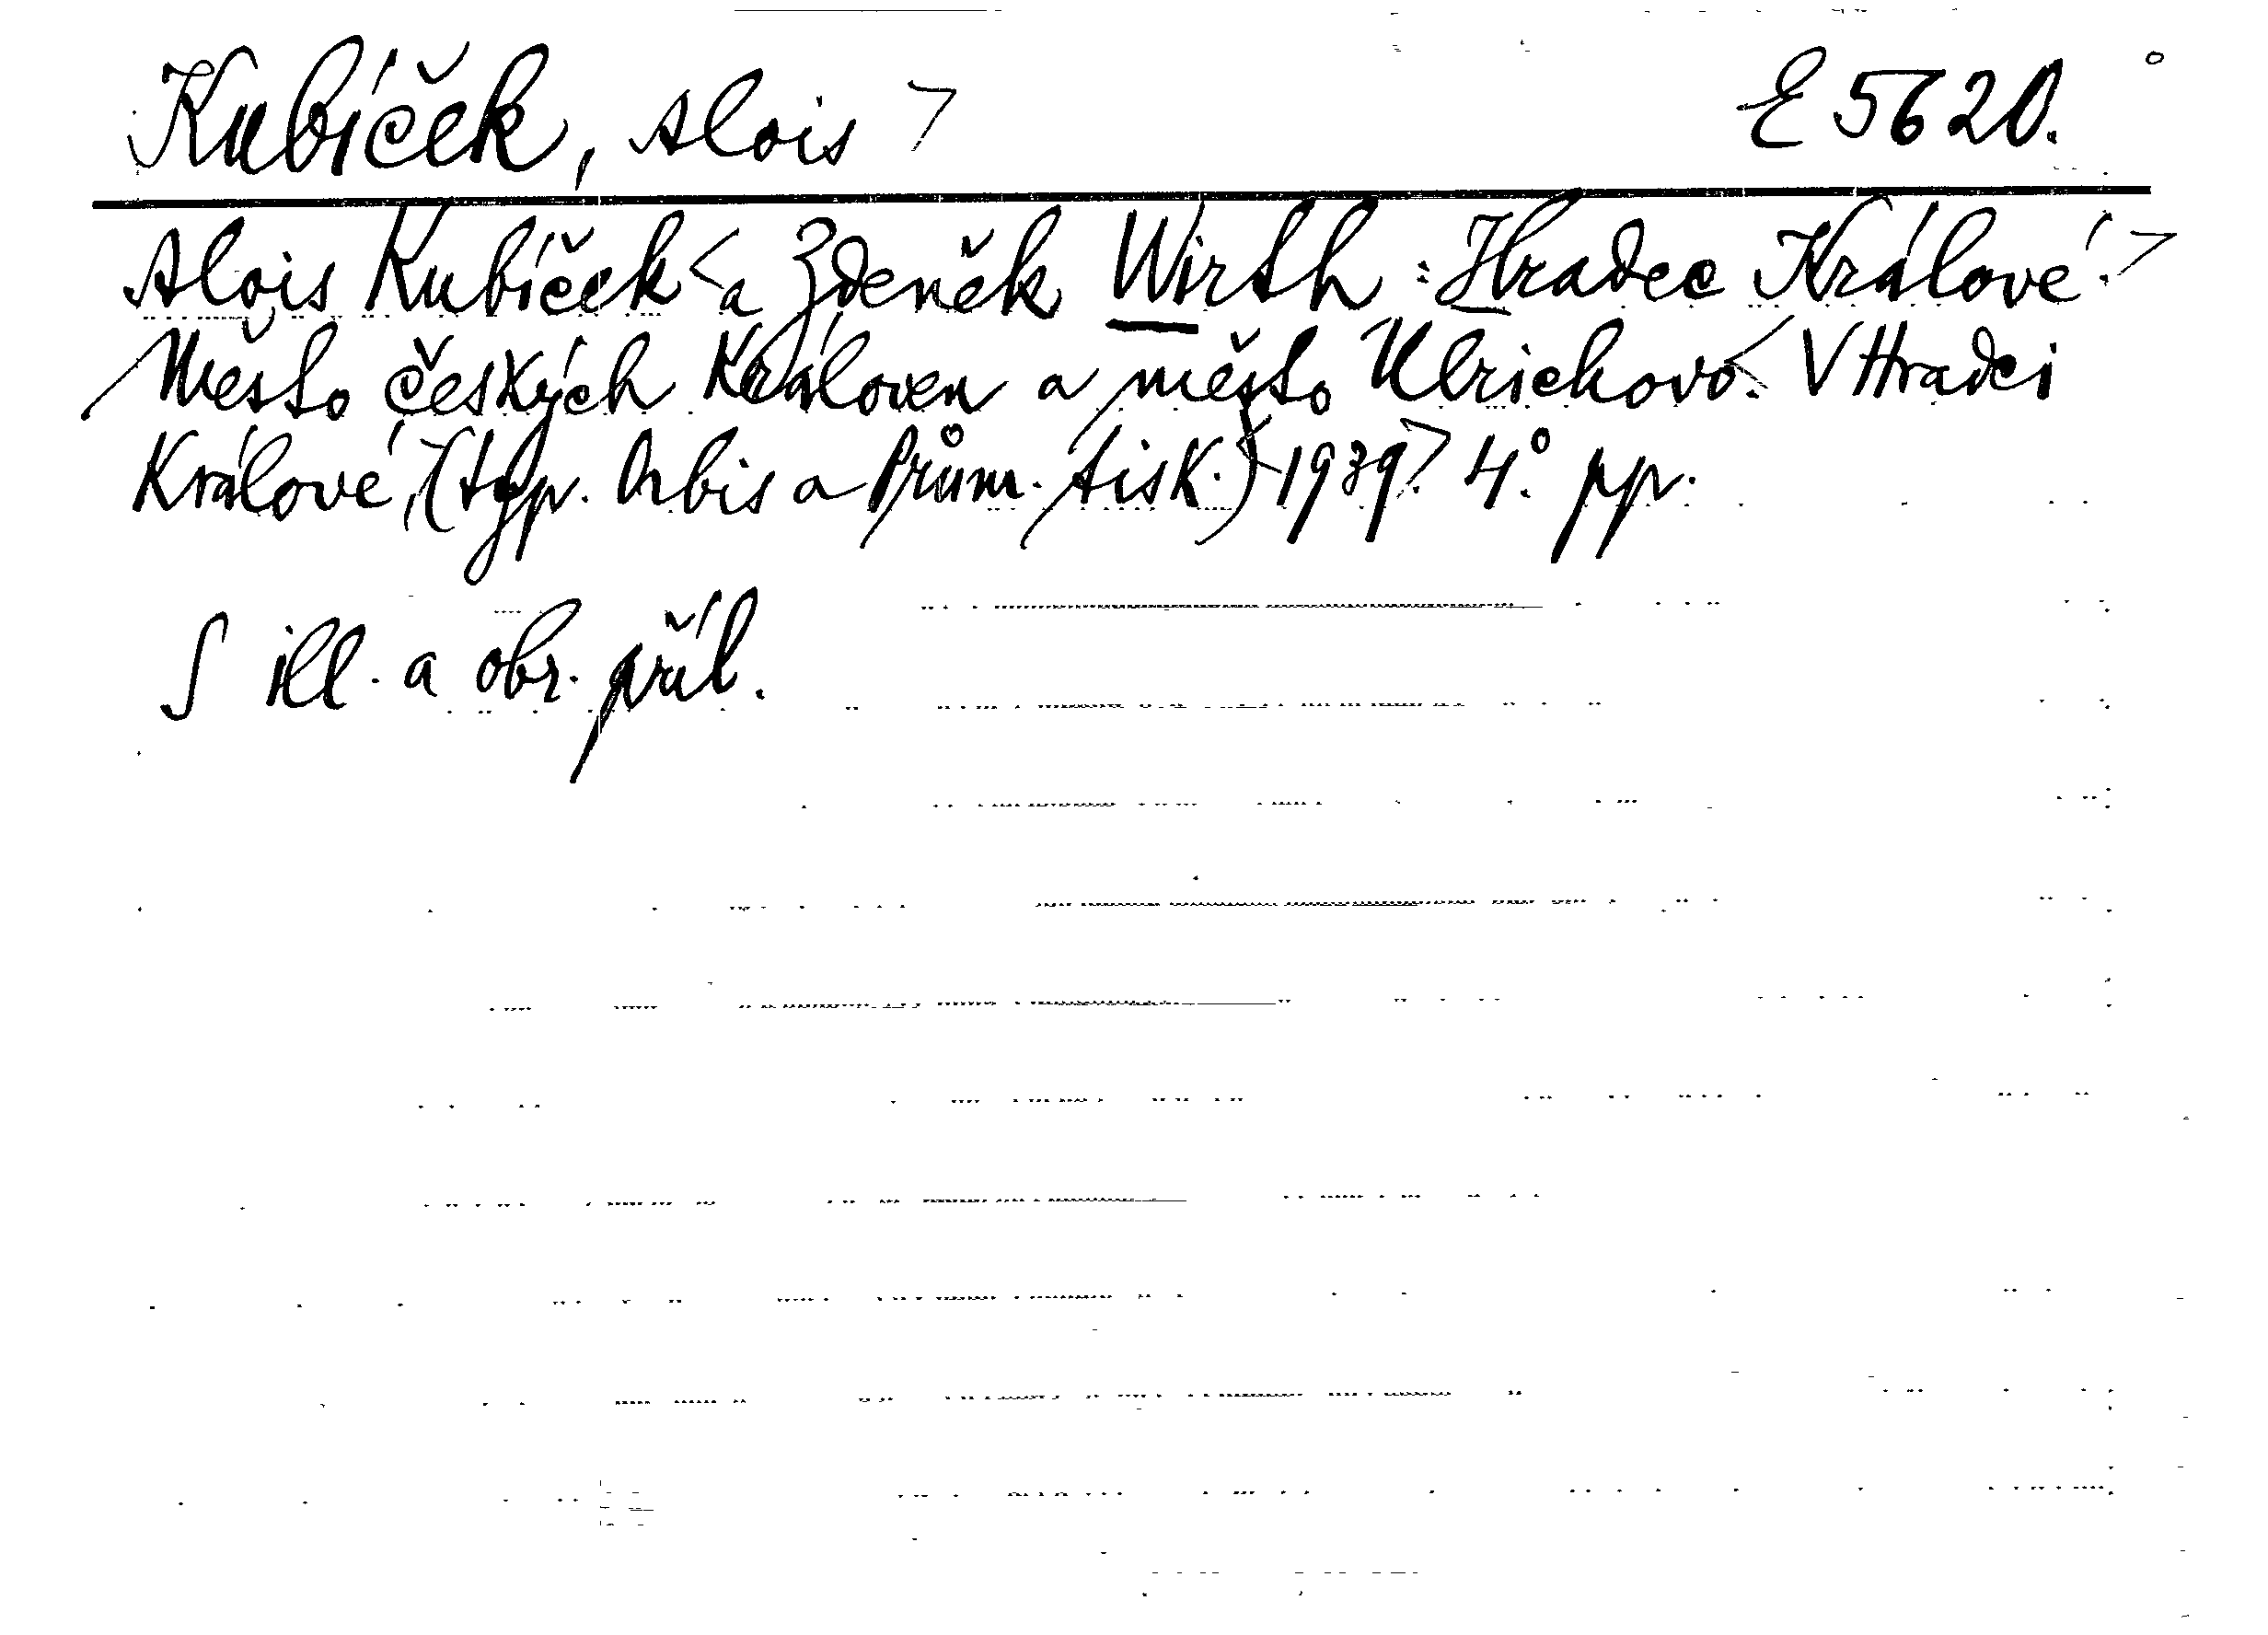 Kubíček, Alois > E 5620.
Alois Kubíček < a Zdeněk Wirth : Hradec Králové. >
Město českých Královen a město Ulrichovo. < V Hradci
Králové, (typ. Orbis a Prům. tisk.) < 1939. > 4°. pp.
S ill. a obr. příl.